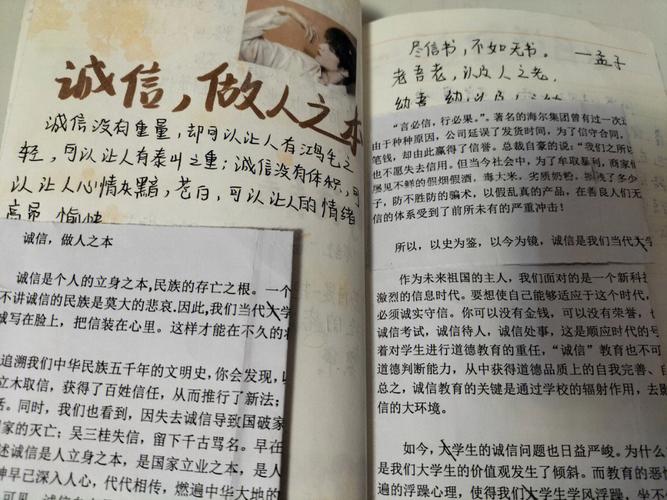 诚信，做人之本
诚信没有重量，却可以让人有鸿毛之
轻，可以让人有泰山之重；诚信没有体积，可
以让人心情
苍白，可以让人的情绪
高昂、愉快
诚信，做人之本
诚信是个人的立身之本，民族的存亡之根。一个
不讲诚信的民族是莫大的悲哀.因此,我们当代大学
诚写在脸上，把信装在心里。这样才能在不久的将
追溯我们中华民族五千年的文明史，你会发现，
立木取信，获得了百姓信任，从而推行了新法；
话。同时，我们也看到，因失去诚信导致国破家
家的灭亡；吴三桂失信，留下千古骂名。早在
述诚信是人立身之本，是国家立业之本，是人
神早已深入人心，代代相传，燃遍中华大地的
可见，诚信
尽信书，不如无书。 —孟子
老吾老，以及人之老
幼吾幼，以及人之幼
“言必信，行必果。”。著名的海尔集团曾有过一次
由于种种原因，公司延误了发货时间，为了信守合同，
笔钱，却由此赢得了信誉。总裁自豪的说：“我们之所以
也不愿失去信用。但当今社会中，为了牟取暴利，商家
屡见不鲜的假烟假酒，毒大米，劣质奶粉，
了多少
子，防不胜防的骗术，以假乱真的产品，在善良人们无
信的体系受到了前所未有的严重冲击！
所以，以史为鉴，以今为镜，诚信是我们当代大学
作为未来祖国的主人，我们面对的是一个新科技
激烈的信息时代。要想使自己能够适应于这个时代，
必须诚实守信。你可以没有金钱，可以没有荣誉，
诚信考试，诚信待人，诚信处事，这是顺应时代的号
着对学生进行道德教育的重任，“诚信”教育也不可
道德判断能力，从中获得道德品质上的自我完善、自
总之，诚信教育的关键是通过学校的辐射作用，去影
信的大环境。
如今，大学生的诚信问题也日益严峻。为什么
是我们大学生的价值观发生了倾斜。而教育的恶
遍的浮躁心理，使得我们大学生学风浮躁，坐不